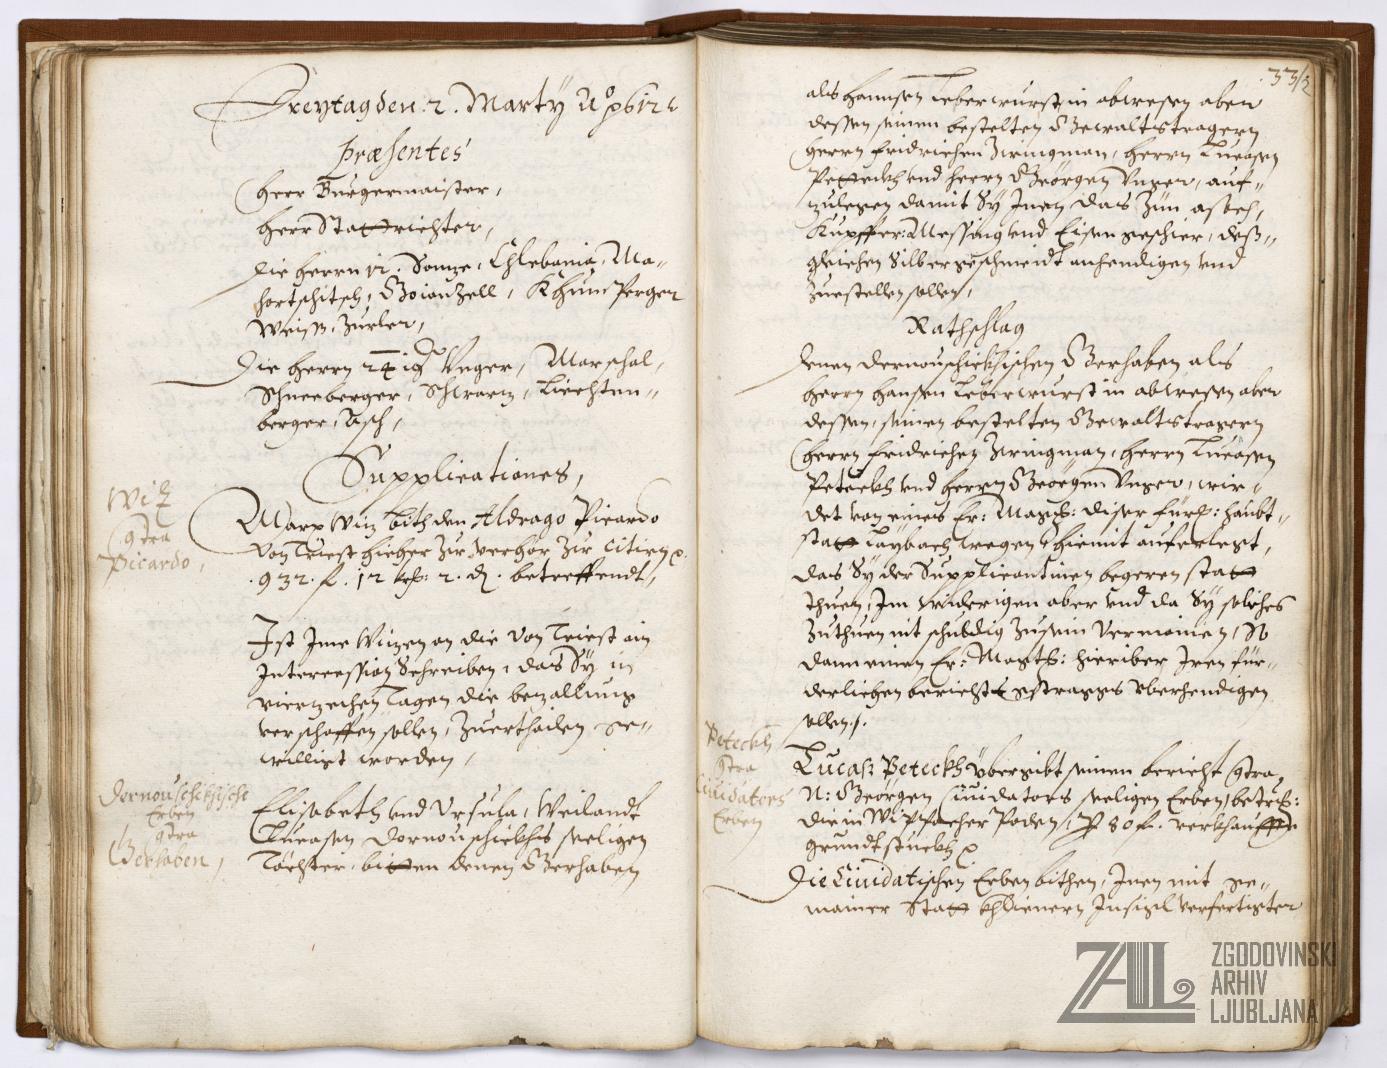 Freytag den 2. Marty Aº 1612
Præsentes
Herr Burgermaister,
Herr Stattrichter,
Die Herrn 12. Sonze, Chlebaniа, Ma-
hortschitsch, Goianzell, Khunperger
Weiß, Zurler,
Die Herrn 24 ig Unger, Marschal,
Schneeberger, Schwarz, Liechten-
berger, Asch,
Supplicationes,
Witz
Contra
Picardo,
Marx Witz bith den Aldrago Picardo
von Triest hieher zur verhör zur citirn
932. f. 12 kr: 2. d. betreffendt,
Ist Ime Witzen an die von Triest ain
Intercession Schreiben, das Sy in
vierzechen Tagen die bezallung
verschaffen sollen, zuerthailen ge-
williget worden,
Dornouschekhische
Erben
Contra
Gerhaben,
Elisabeth und Ursula, Weilandt
Lucasen Dornouschikhs seeligen
Töchter, bitten denen Gerhaben
332
als Hannsen Leberwurst in abwesen aber
dessen seinen bestelten Gewaltstragern
Herrn Fridrichen Zwingman, Herrn Lucasen
Peteckh und Herrn Georgen Unger, auf-
zulegen damit Sy Inen das Zün, asch,
Kupffer: Messing und Eisen geschier, deß-
gleichen Silbergeschmeidt anhendigen und
zuestellen sollen,
Rathschlag
Denen Dornouschickhischen Gerhaben als
Herrn Hansen Leberwurst in abwesen aber
dessen, seinen bestelten Gewaltstragern
Herrn Fridrichen Zwingman, Herrn Lucasen
Peteckh und Herrn Georgen Unger, wir-
det von eines Er: Magist: diser fürstl: haubt-
statt Laybach wegen hiemit auferlegt,
das Sy der Supplicantinen begeren statt
thuen, Im widerigen aber und da Sy solches
zuthuen nit schuldig zusein vermainen, So
dann einen Er: Magist: hieriber Iren für-
derlichen bericht gstragges überhendigen
sollen.
Peteckh
Contra
Ciuidators
Erben
Lucas Peteckh übergibt seinen bericht Contra
N: Georgen Ciuidators seeligen Erben, betreff:
die in Wippacher Poden, P 80 f. verkhauffte
grundtstuckh
Die Ciuidatischen Erben bithen, Inen mit ge-
mainer Statt khlienern Insigl verfertigter
ZAL
ZGODOVINSKI
ARHIV
LJUBLJANA